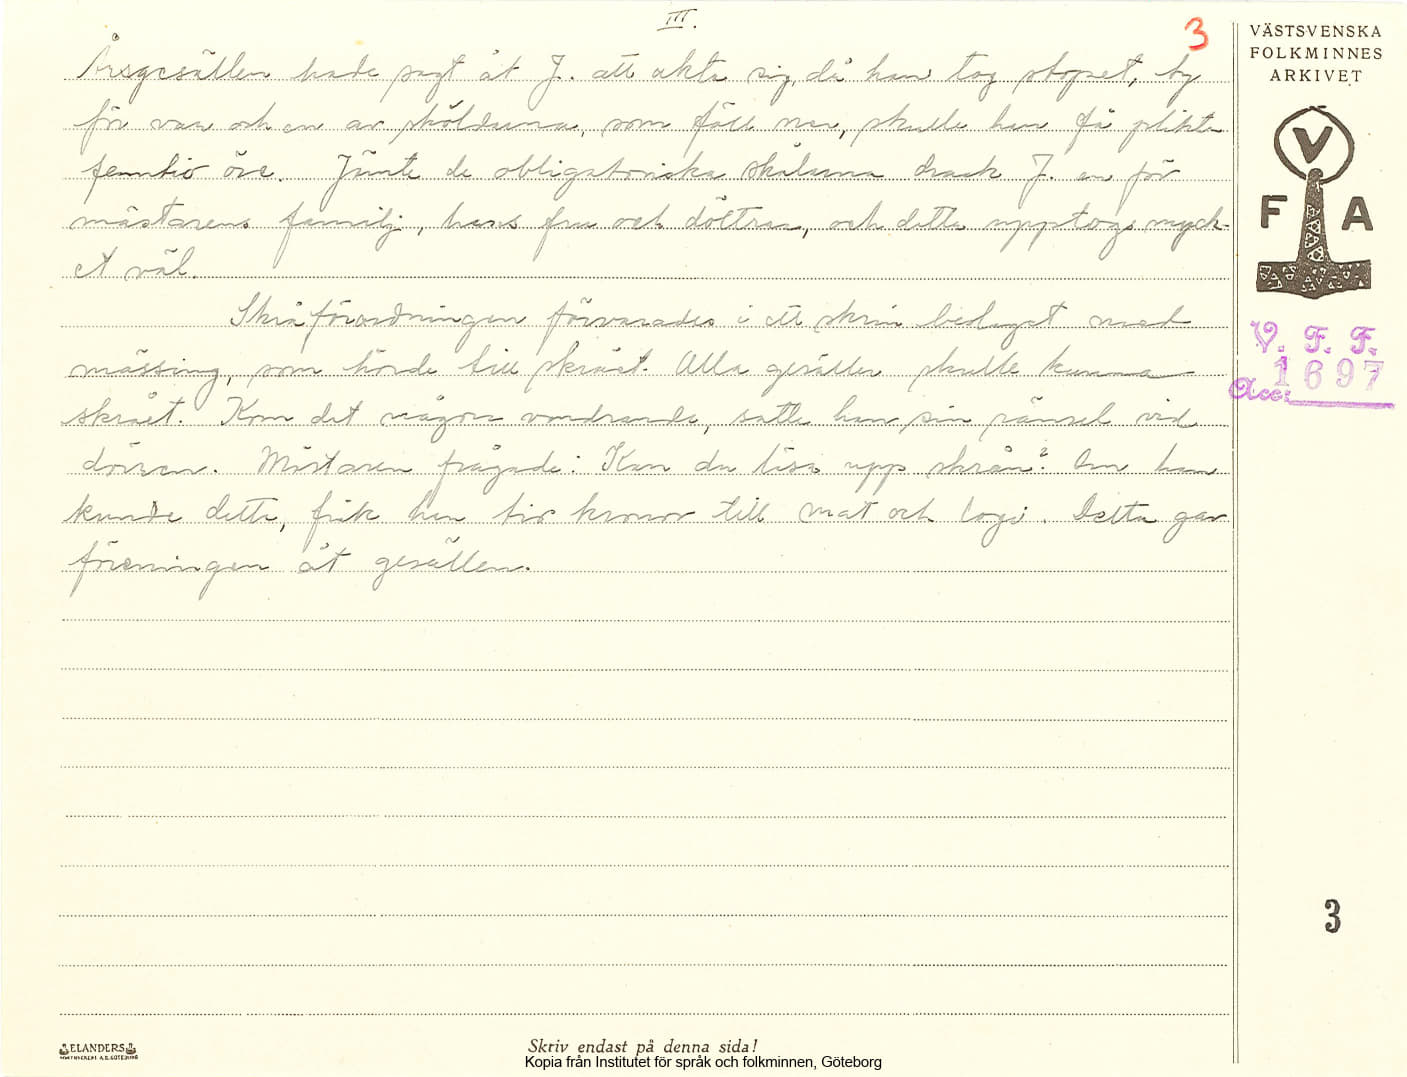 III.
3
Årsgesällen hade sagt åt J. att akta sig, då han tog stopet, ty
för var och en av sköldarna, som föll ner, skulle han få plikta
femtio öre. Jämte de obligatoriska skålarna drack J. en för
mästarens familj, hans fru och döttrar, och detta upptogs myck-
et väl.
Skråförordningen förvarades i ett skrin beslaget med
mässing, som hörde till skrået. Alla gesäller skulle kunna
skrået. Kom det någon vandrande, satte han sin ränsel vid
dörren. Mästaren frågade: Kan du läsa upp skrån? Om han
kunde detta, fick han tio kronor till mat och logi. Detta gav
föreningen åt gesällen.
VÄSTSVENSKA
FOLKMINNES
ARKIVET
V
F A
V. F. F.
Acc: 1697
3
ELANDERS
Skriv endast på denna sida!
Kopia från Institutet för språk och folkminnen, Göteborg